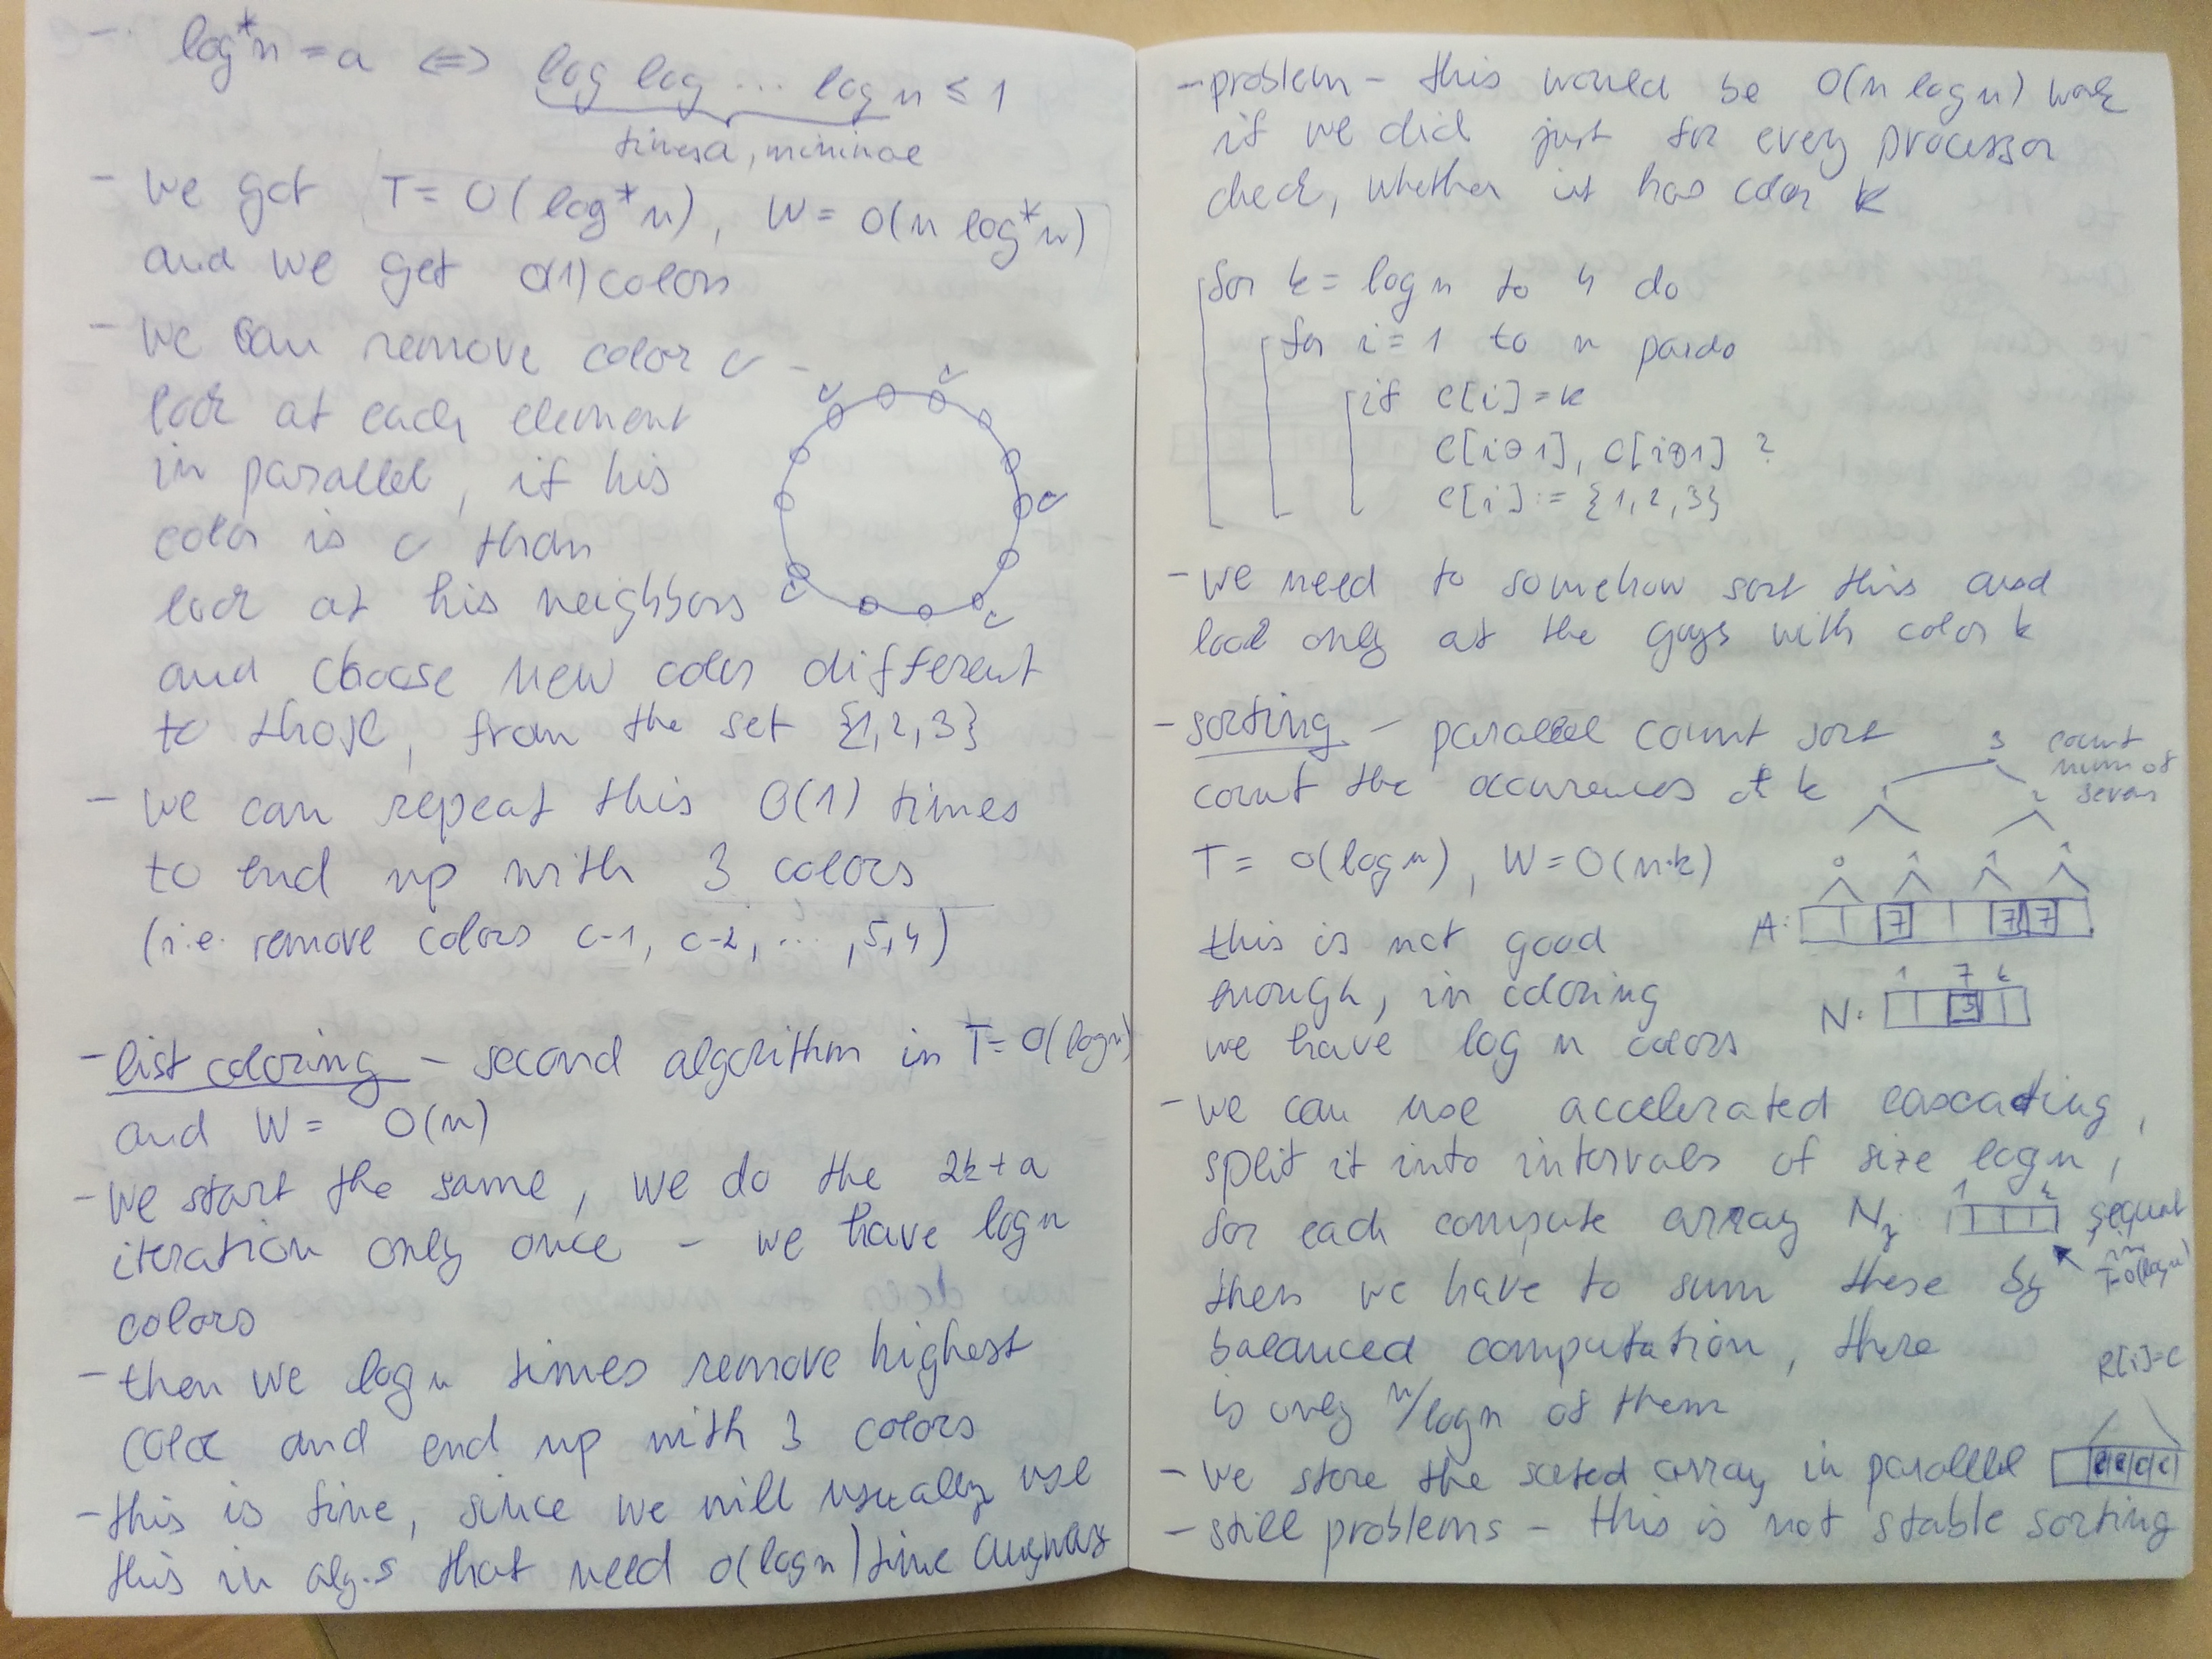 - log*n = a <=> log log ... log n ≤ 1
times a, minimal
- we got T = O(log*n), W = O(n log*n)
and we get O(1) colors
- we can remove color c -
look at each element
in parallel, if his
color is c than
look at his neighbors
and choose new color different
to those, from the set {1,2,3}
c c c c c
- we can repeat this O(1) times
to end up with 3 colors
(i.e. remove colors c-1, c-2, ... , 5,4)
- list coloring - second algorithm in T = O(log n)
and W = O(n)
- we start the same, we do the 2k+a
iteration only once - we have log n
colors
- then we log n times remove highest
color and end up with 3 colors
- this is fine, since we will usually use
this in alg.s that need O(log n) time anyway
- problem - this would be O(n log n) work
if we did just for every processor
check, whether it has color k
for k = log n to 4 do
for i = 1 to n pardo
if C[i] = k
C[i⊖1], C[i⊕1] ?
C[i] := {1,2,3}
- we need to somehow sort this and
look only at the guys with color k
- sorting - parallel count sort
count the occurences of k
3 count
num of
seven
1 2
0 1 1 1
T = O(log n), W = O(n·k)
A: 7 7 7
this is not good
enough, in coloring
1 7 k
N: 3
we have log n colors
- we can use accelerated cascading,
split it into intervals of size log n,
for each compute array N
1 k
sequent
in
T=O(log n)
then we have to sum these by
balanced computation, there
is only n/log n of them
R[i]=c
- we store the sorted array in parallel c c c c
- still problems - this is not stable sorting